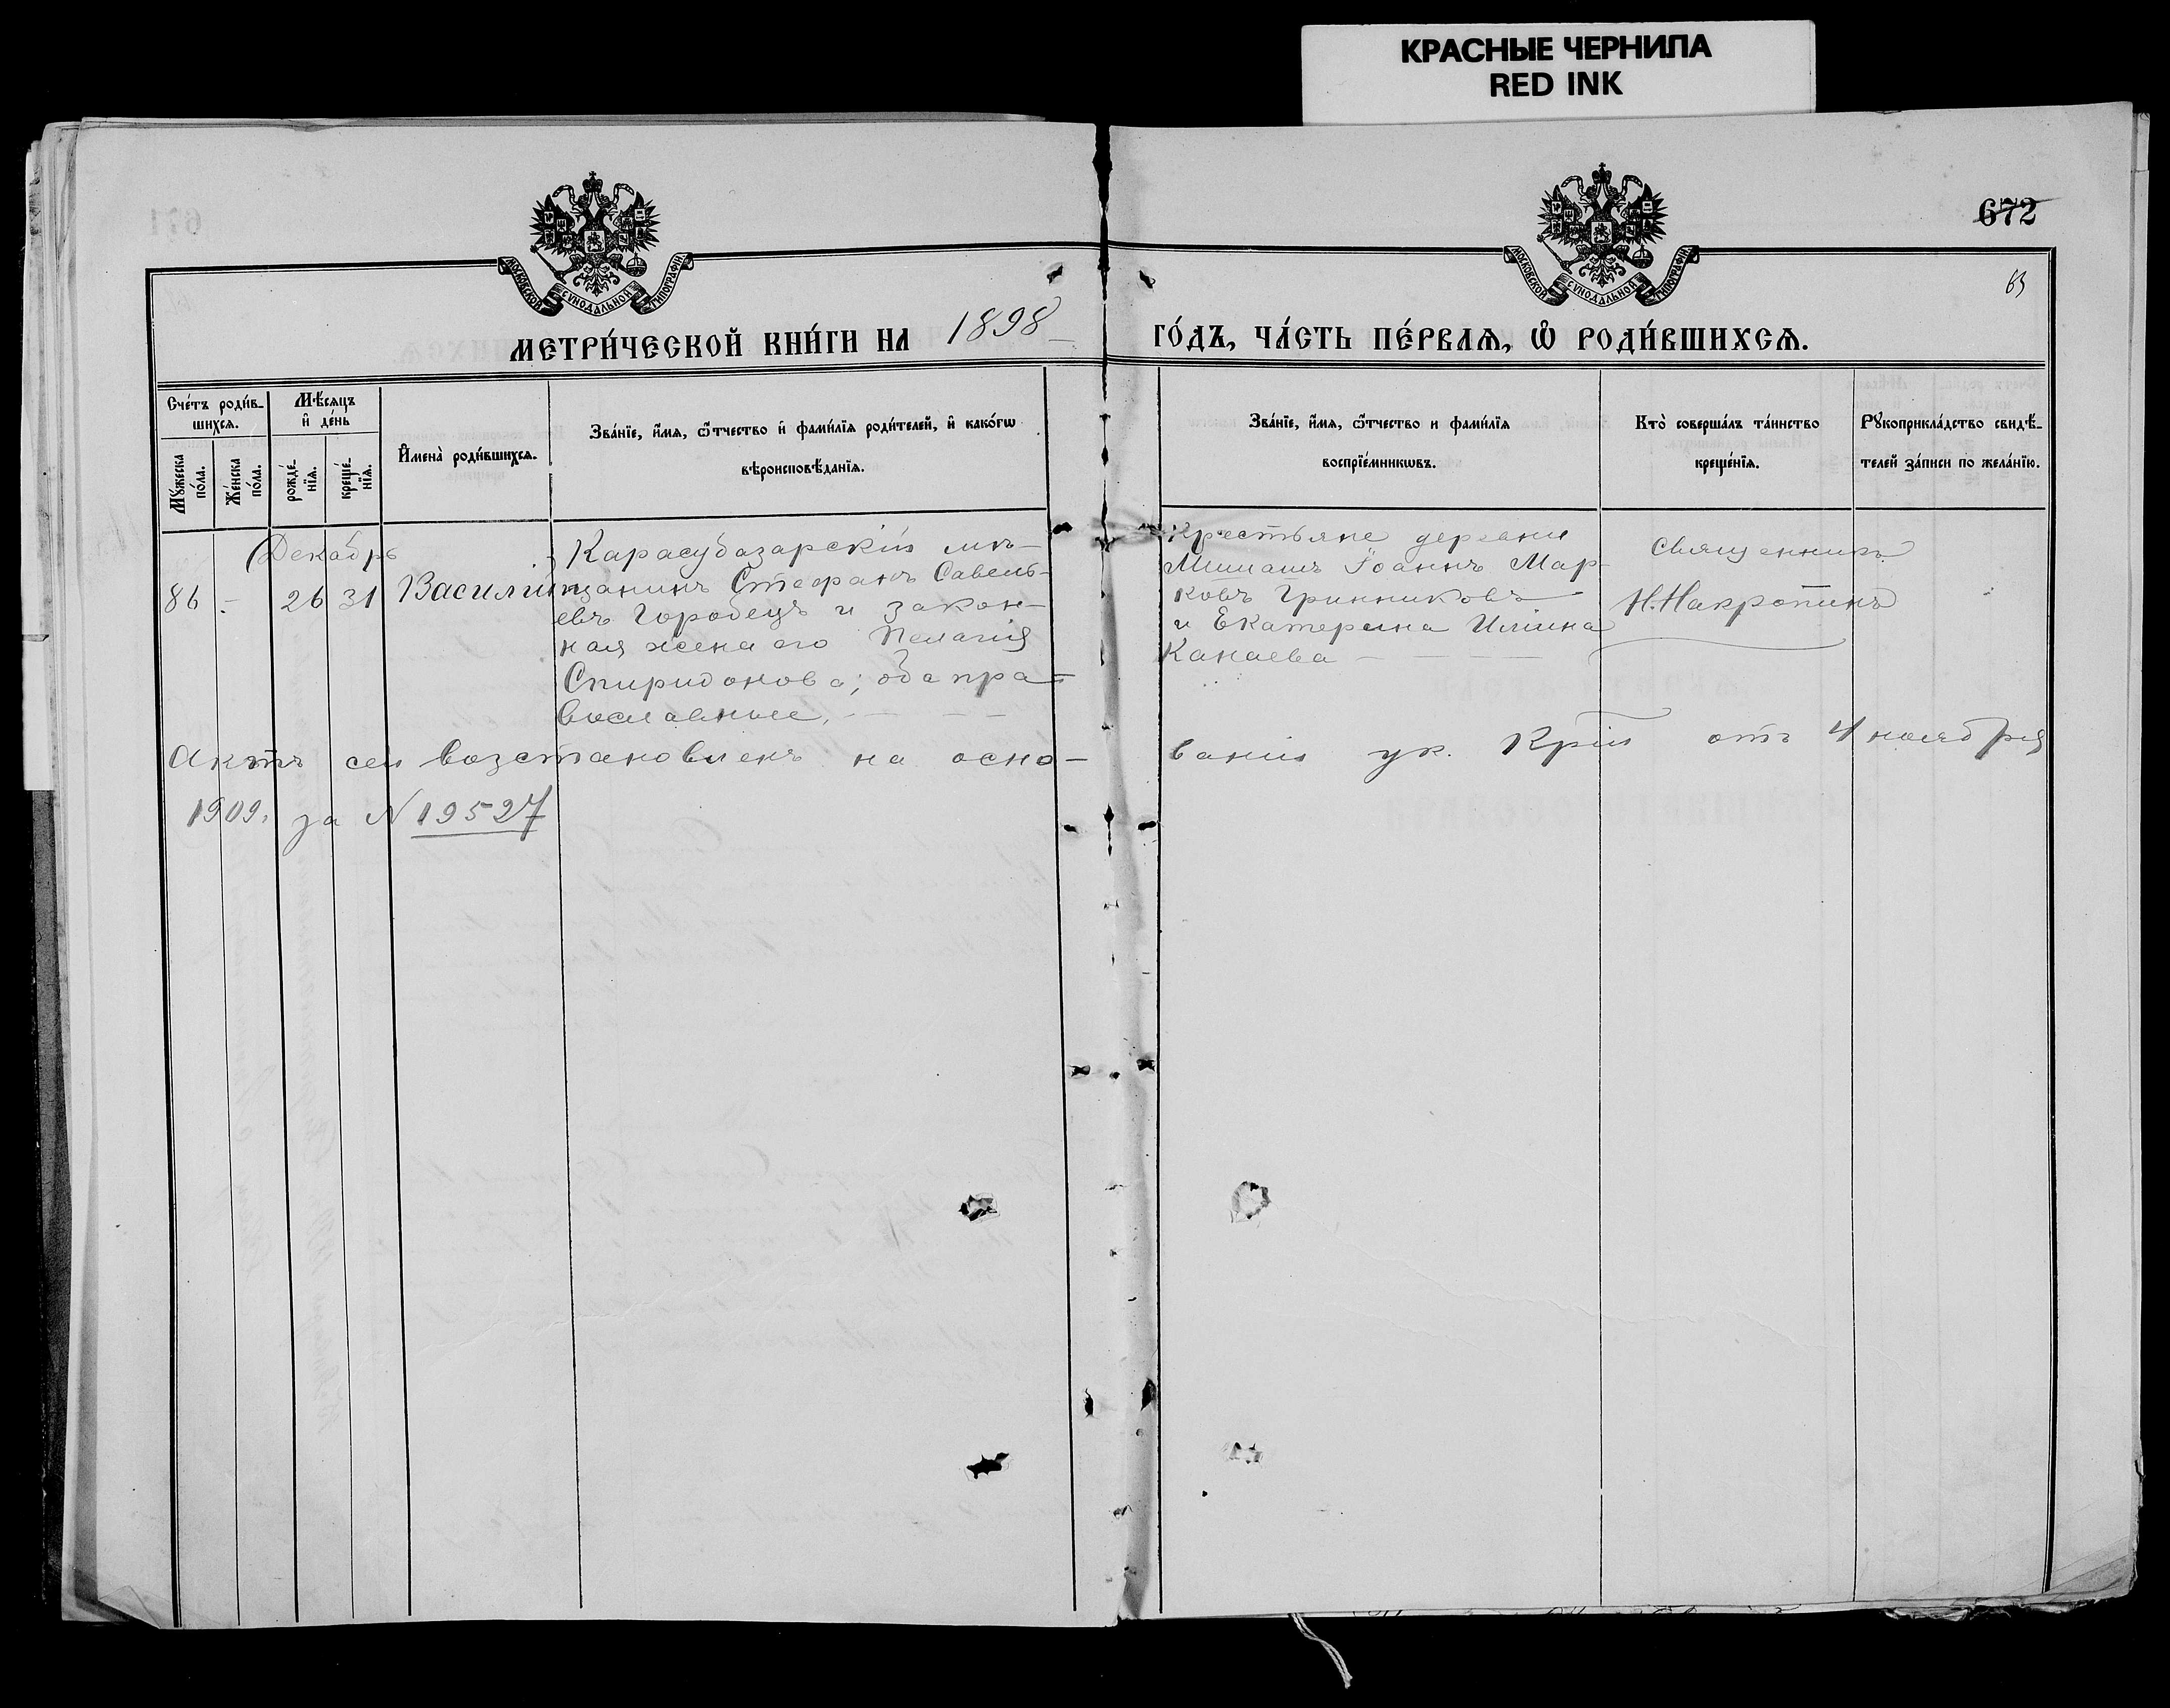 КРАСНЫЕ ЧЕРНИЛА
RED INK
672
63
МОСКОВСКОЙ СѴНОДАЛЬНОЙ ТИПОГРАФІИ
МОСКОВСКОЙ СѴНОДАЛЬНОЙ ТИПОГРАФІИ
МЕТРИ́ЧЕСКОЙ КНИ́ГИ НА 1898 ГО́ДЪ, ЧА́СТЬ ПЕ́РВАѦ, Ѡ҆ РОДИ́ВШИХСѦ.
Сче́тъ роди́в-
шихся.
Мꙋ́жеска
по́ла.
Же́нска
по́ла.
Мѣ́сяцъ
и҆ де́нь
рожде́-
нїя.
креще́-
нїя.
И҆мена̀ роди́вшихся.
Зва́нїе, и҆́мя, ѻ҆́тчество и҆ фами́лїя роди́телей, и҆ како́гѡ
вѣроисповѣ́данїя.
Зва́нїе, и҆́мя, ѻ҆́тчество и фами́лїя
воспрїе́мникѡвъ.
Кто̀ соверша́лъ та́инство
креще́нїя.
Рꙋкоприкла́дство свидѣ́-
телей за́писи по жела́нїю.
Декабрь
86 - 26 31 Василій
Карасубазарскій мѣ-
щанинъ Стефанъ Савель-
евъ Городецъ и закон-
ная жена его Пелагія
Спиридонова; оба пра-
вославные.
Крестьяне деревни
Іоаннъ Мар-
ковъ Гринниковъ
и Екатерина Иліина
Канаева
Священникъ
Н. Накропинъ
Актъ сей возстановленъ на осно-
ваніи ук. от 4 ноября
1909. за N 19527